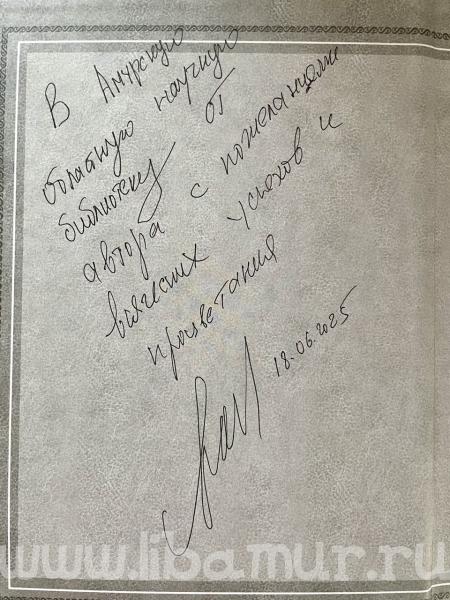 В Амурскую
областную научную
библиотеку от
автора с пожеланиями
всяческих успехов и
процветания
18.06.2025
www.libamur.ru